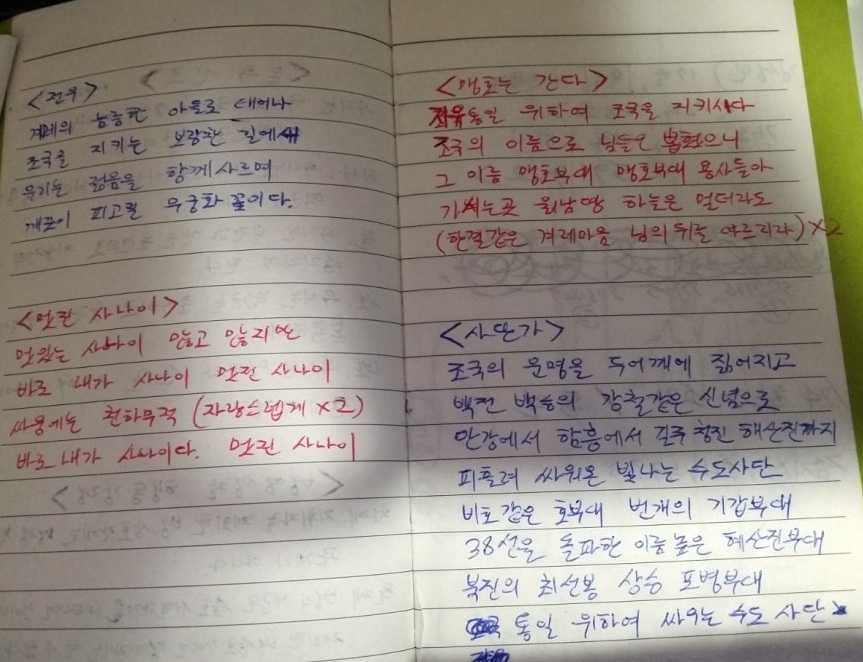 <전우>
겨레의 늠름한 아들로 태어나
조국을 지키는 보람찬 길에서
우리는 젊음을 함께 사르며
깨끗이 피고질 무궁화 꽃이다.
<멋진 사나이>
멋있는 사나이 많고 많지만
바로 내가 사나이 멋진 사나이
싸움에는 천하무적 (자랑스럽게 X2)
바로 내가 사나이다. 멋진 사나이
<맹호는 간다>
자유통일 위하여 조국을 지키시다
조국의 이름으로 님들은 뽑혔으니
그 이름 맹호부대 맹호부대 용사들아
가시는곳 월남땅 하늘은 멀더라도
(한결같은 겨레마음 님의 뒤를 따르리라) X2
<사단가>
조국의 운명을 두어깨에 짊어지고
백전 백승의 강철같은 신념으로
안강에서 함흥에서 길주 청진 혜산진까지
피흘려 싸워온 빛나는 수도사단
비호같은 호부대 번개의 기갑부대
38선을 돌파한 이름높은 혜산진부대
북진의 최선봉 상승 포병부대
통일 위하여 싸우는 수도 사단